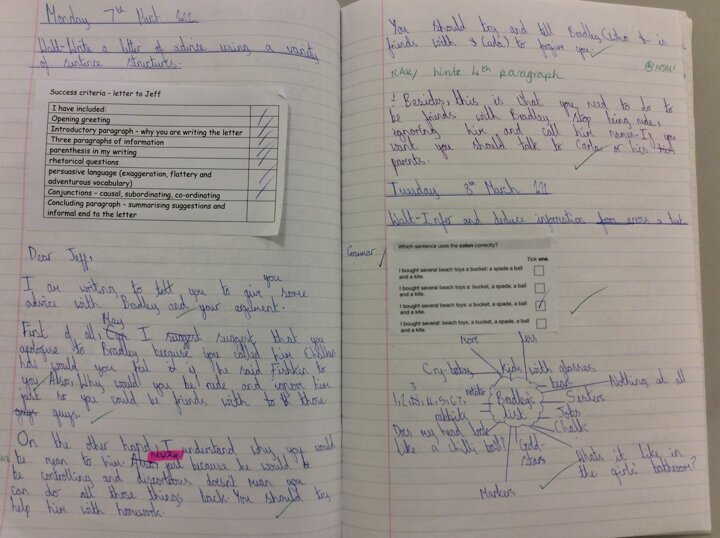 Monday 7th March 2022
Walt-Write a letter of advice using a variety
of sentence structures.
Success criteria - letter to Jeff
I have included:
Opening greeting
Introductory paragraph - why you are writing the letter
Three paragraphs of information
parenthesis in my writing
rhetorical questions
persuasive language (exaggeration, flattery and
adventurous vocabulary)
Conjunctions - causal, subordinating, co-ordinating
Concluding paragraph - summarising suggestions and
informal end to the letter
Dear Jeff,
you
I am writing to tell you to give some
advice with Bradley and your argument.
May
First of all, I suggest suggest that you
apologise to Bradley because you called him Chalkers
how would you feel if he said to
you. Also, Why would you be rude and ignore him
just so you could be friends with those
guys guys.
On the other hand, I understand why you would
be mean to him. just because he would
be controlling and discorteous doesn't mean you
can do all those things back. You should try
help him with homework.
You should try and tell Bradley (who is
friends with to forgive you.
Write 4th paragraph
Besides, this is what you need to do to
be friends with Bradley, stop being rude,
ignoring him and call him names. If you
want you should talk to Carla or his
parents.
Tuesday 8th March 2022
Walt-Infer and deduce information from across a text
Grammar
Which sentence uses the colon correctly?
Tick one.
I bought several beach toys a bucket: a spade, a ball
and a kite.
I bought several beach toys a: bucket, a spade, a ball
and a kite.
I bought several beach toys: a bucket, a spade, a ball
and a kite.
I bought several: beach toys, a bucket, a spade, a ball
and a kite.
More
less
Cry-baby
Kids with glasses
bears
Nothing at all
Sisters
rabbits
Bradleys
list
Jobs
Chalk
Does my head look
like a chilly bowl?
Gold-
Stars
Whats it like in
the girls' bathroom?
Markers